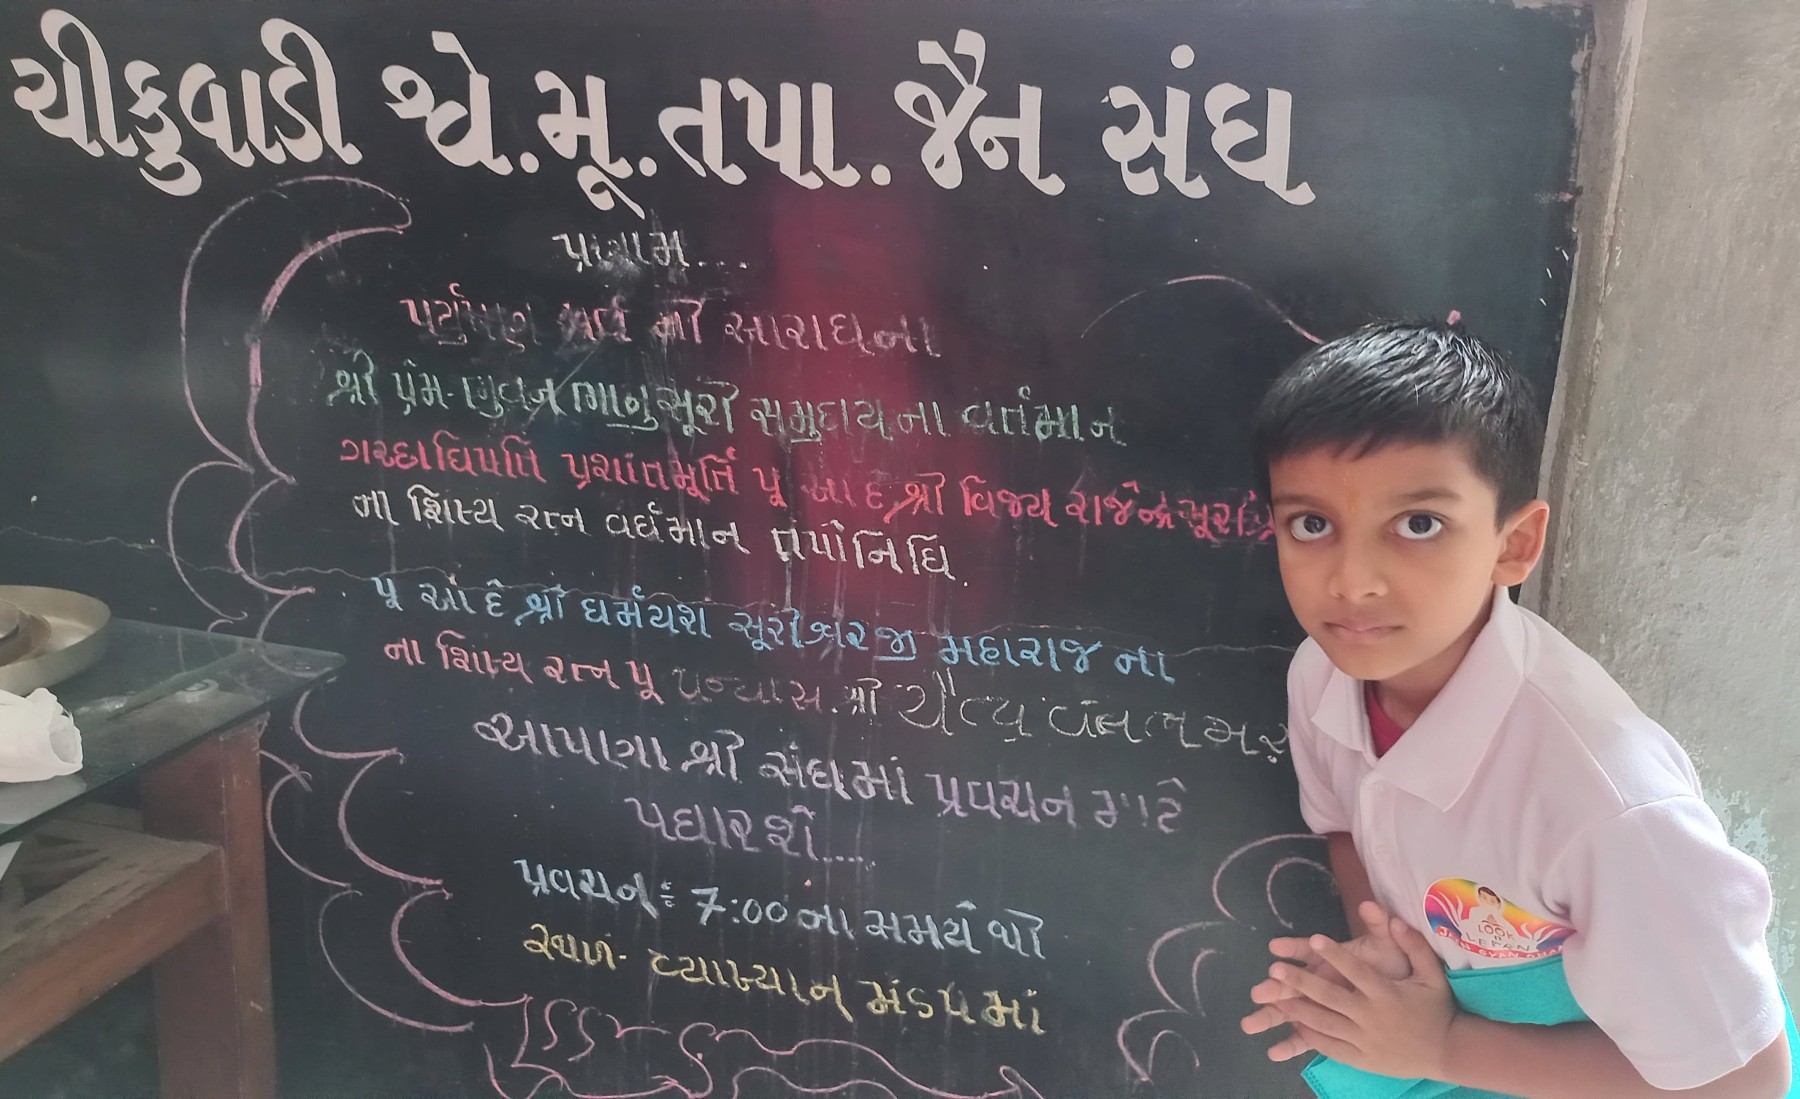 ચીકુવાડી શ્વે.મૂ.તપા.જૈન સંઘ
પ્રણામ....
પર્યુષણ પર્વ ની આરાધના
શ્રી પ્રેમ-ભુવન ભાનુસૂરી સમુદાયના વર્તમાન
ગચ્છાધિપતિ પ્રશાંતમૂર્તિ પૂ આ દે શ્રી વિજય રાજેન્દ્રસૂરીશ્વ
ના શિષ્ય રત્ન વર્ધમાન તપોનિધિ.
પૂ આ દે શ્રી ધર્મયશ સૂરીશ્વરજી મહારાજ ના
ના શિષ્ય રત્ન પૂ પન્યાસ.શ્રી ચૈત્ય
આપણા શ્રી સંઘમાં પ્રવચન માટે
પધારશે.....
પ્રવચન: 7:00 ના સમયે થી
સ્થળ- વ્યાખ્યાન મંડપમાં
LOOK
N
LEARN